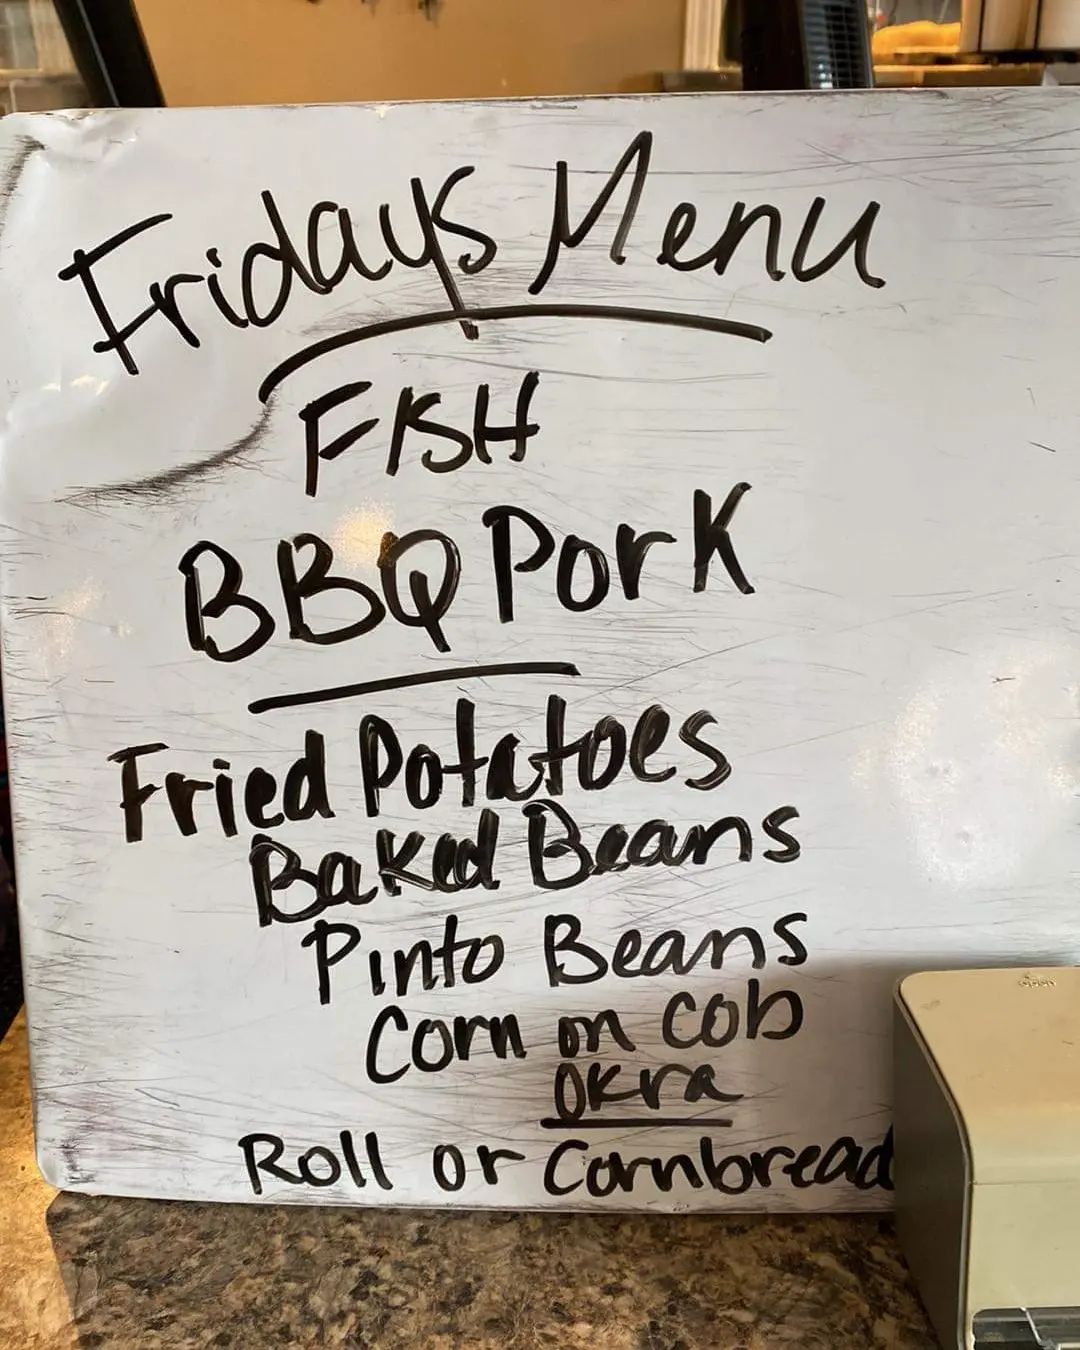 Fridays Menu
FISH
BBQ Pork
Fried Potatoes
Baked Beans
Pinto Beans
Corn on Cob
Okra
Roll or Cornbread